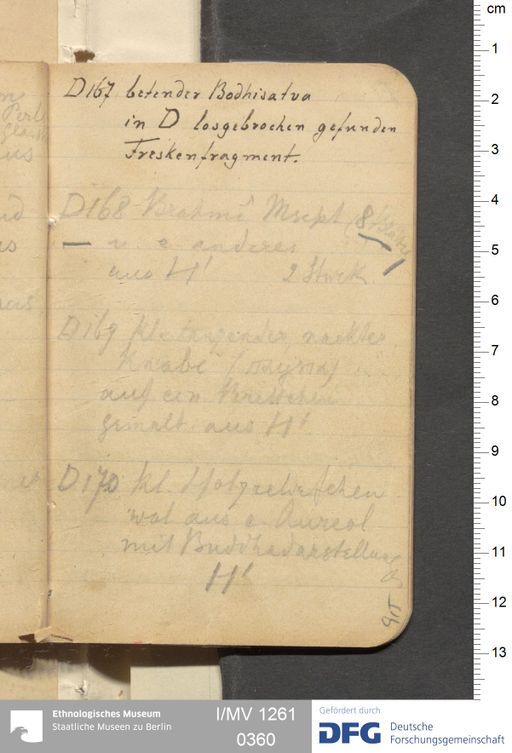 D167 betender Bodhisatva
in D losgebrochen gefunden
Freskenfragment.
D168 Brahmî Mscpt (8
u. e. anderes
aus H' 2 Stück
D169 kl. nackter
Knabe
auf ein Brettchen
gemalt. aus H'
D170 kl.
wol aus e. Aureol
mit Buddhadarstellung
H'
cm
1
2
3
4
5
6
7
8
9
10
11
12
13
Ethnologisches Museum
Staatliche Museen zu Berlin
I/MV 1261
0360
Gefördert durch
DFG Deutsche
Forschungsgemeinschaft